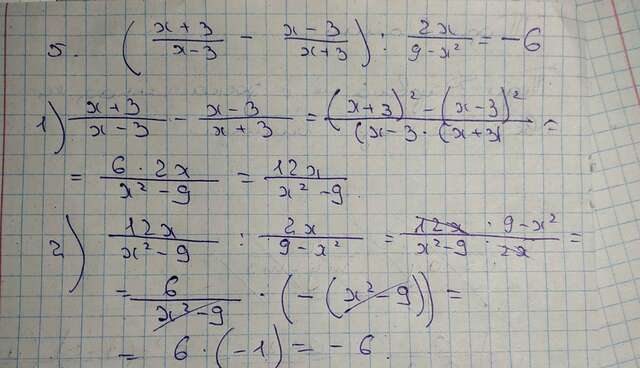 5. ((x+3)/(x-3) - (x-3)/(x+3)) : 2x/(9-x²) = -6
1) (x+3)/(x-3) - (x-3)/(x+3) = ((x+3)² - (x-3)²)/((x-3 · (x+3) =
= (6 · 2x)/(x²-9) = 12x/(x²-9)
2) 12x/(x²-9) : 2x/(9-x²) = (12x · 9-x²)/(x²-9 · 2x) =
= 6/(x²-9) · (-(x²-9)) =
= 6 · (-1) = -6